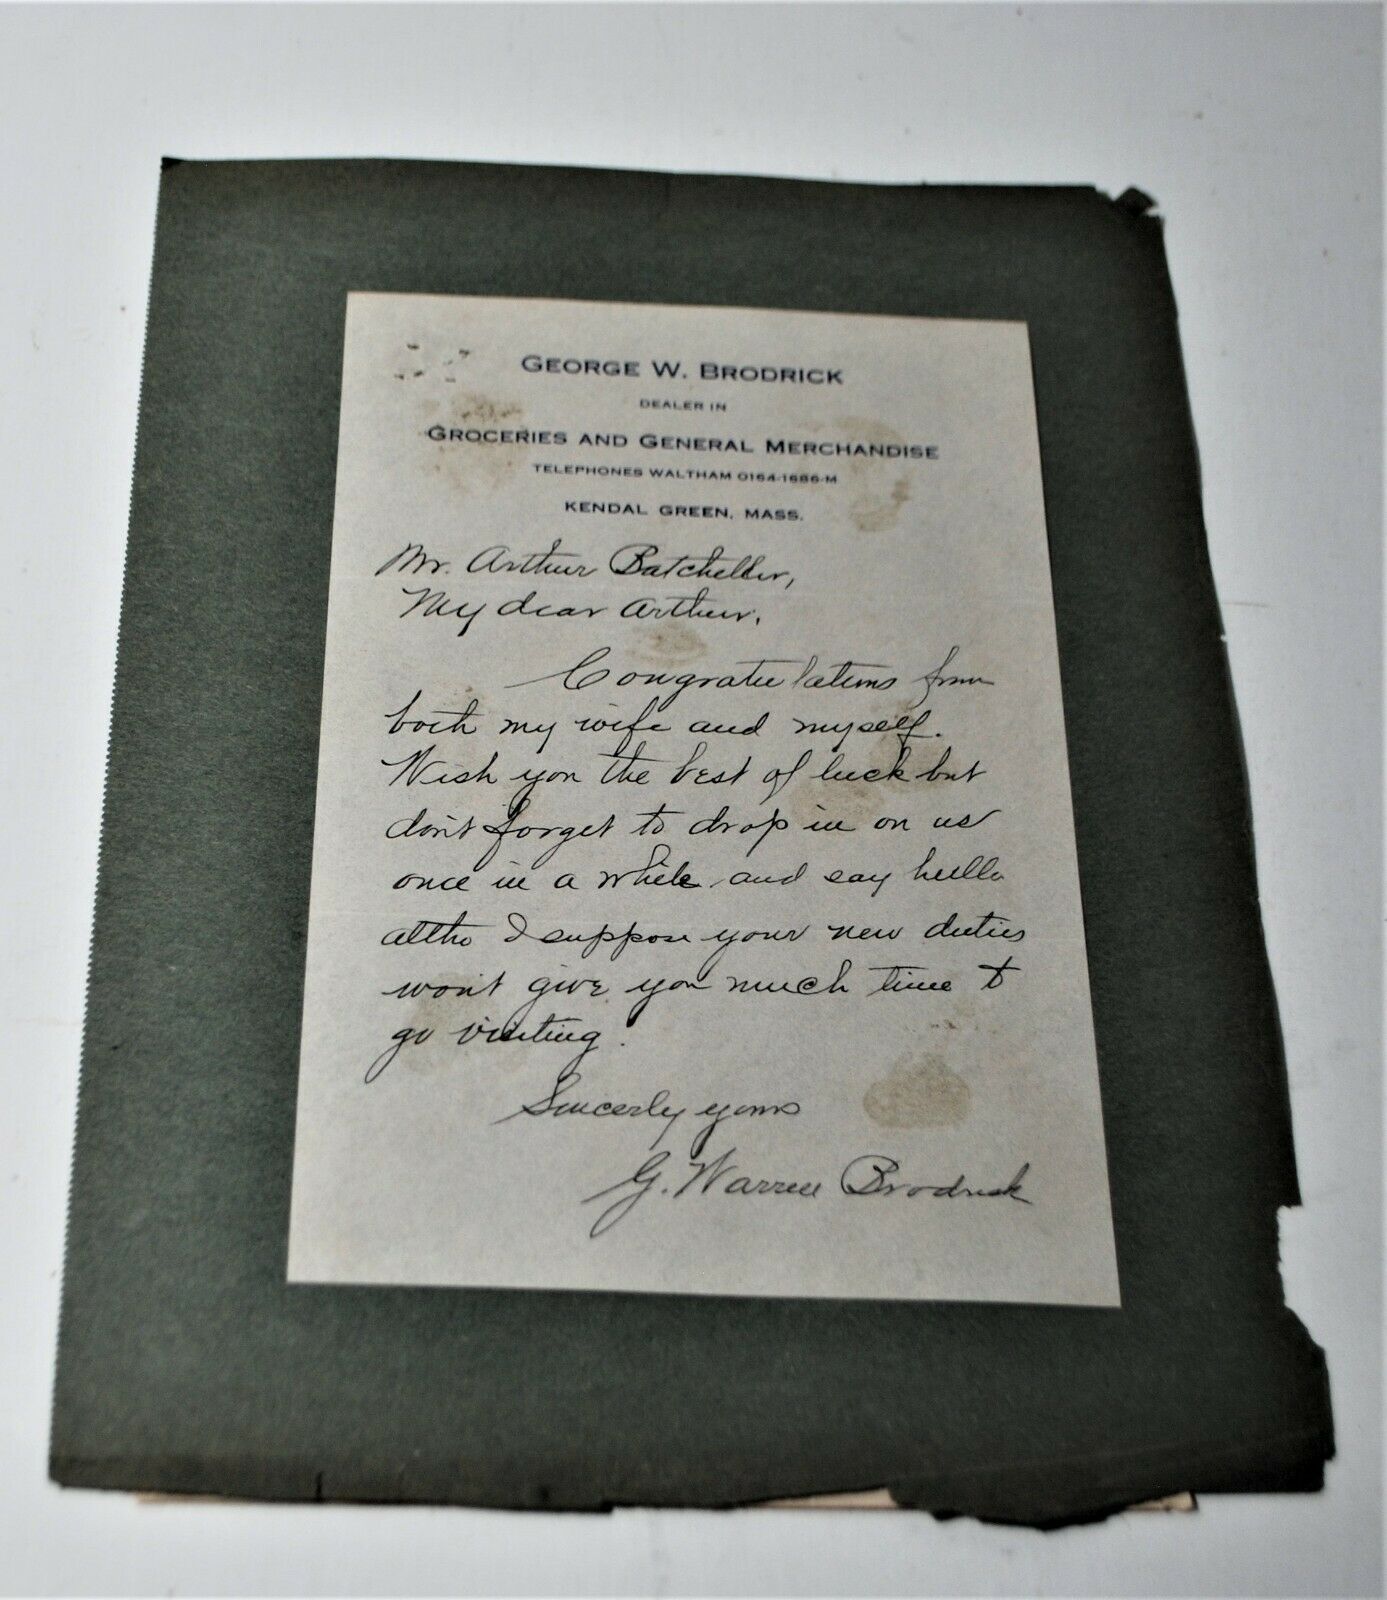 GEORGE W. BRODRICK
DEALER IN
GROCERIES AND GENERAL MERCHANDISE
TELEPHONES WALTHAM 0164-1686-M
KENDAL GREEN, MASS.
Mr. Arthur Batcheller,
My dear Arthur,
Congratulations from
both my wife and myself.
Wish you the best of luck but
don't forget to drop in on us
once in a while and say hello
altho I suppose your new duties
won't give you much time to
go visiting.
Sincerely yours
G. Warren Brodrick